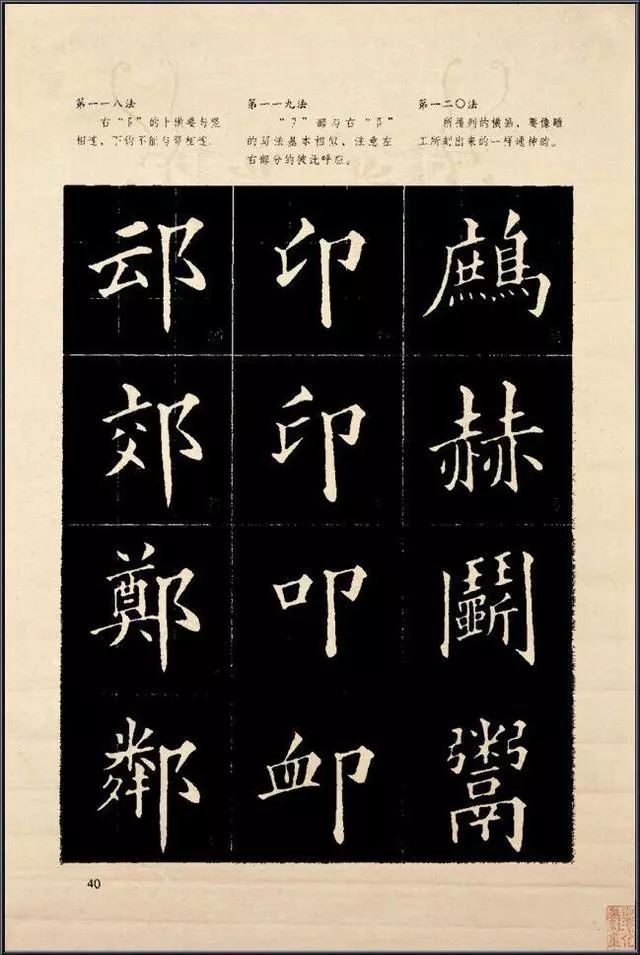 第一一八法
右“阝”的上撇要与竖
相连，下钩不能与竖相连。
第一一九法
“卩”部与右“阝”
的写法基本相似，注意左
右部分的彼此呼应。
第一二〇法
所排列的横画，要像雕
工所刻出来的一样通神的。
䢵 印 鷓
郊 印 赫
鄭 叩 鬭
鄰 卹 鬻
40